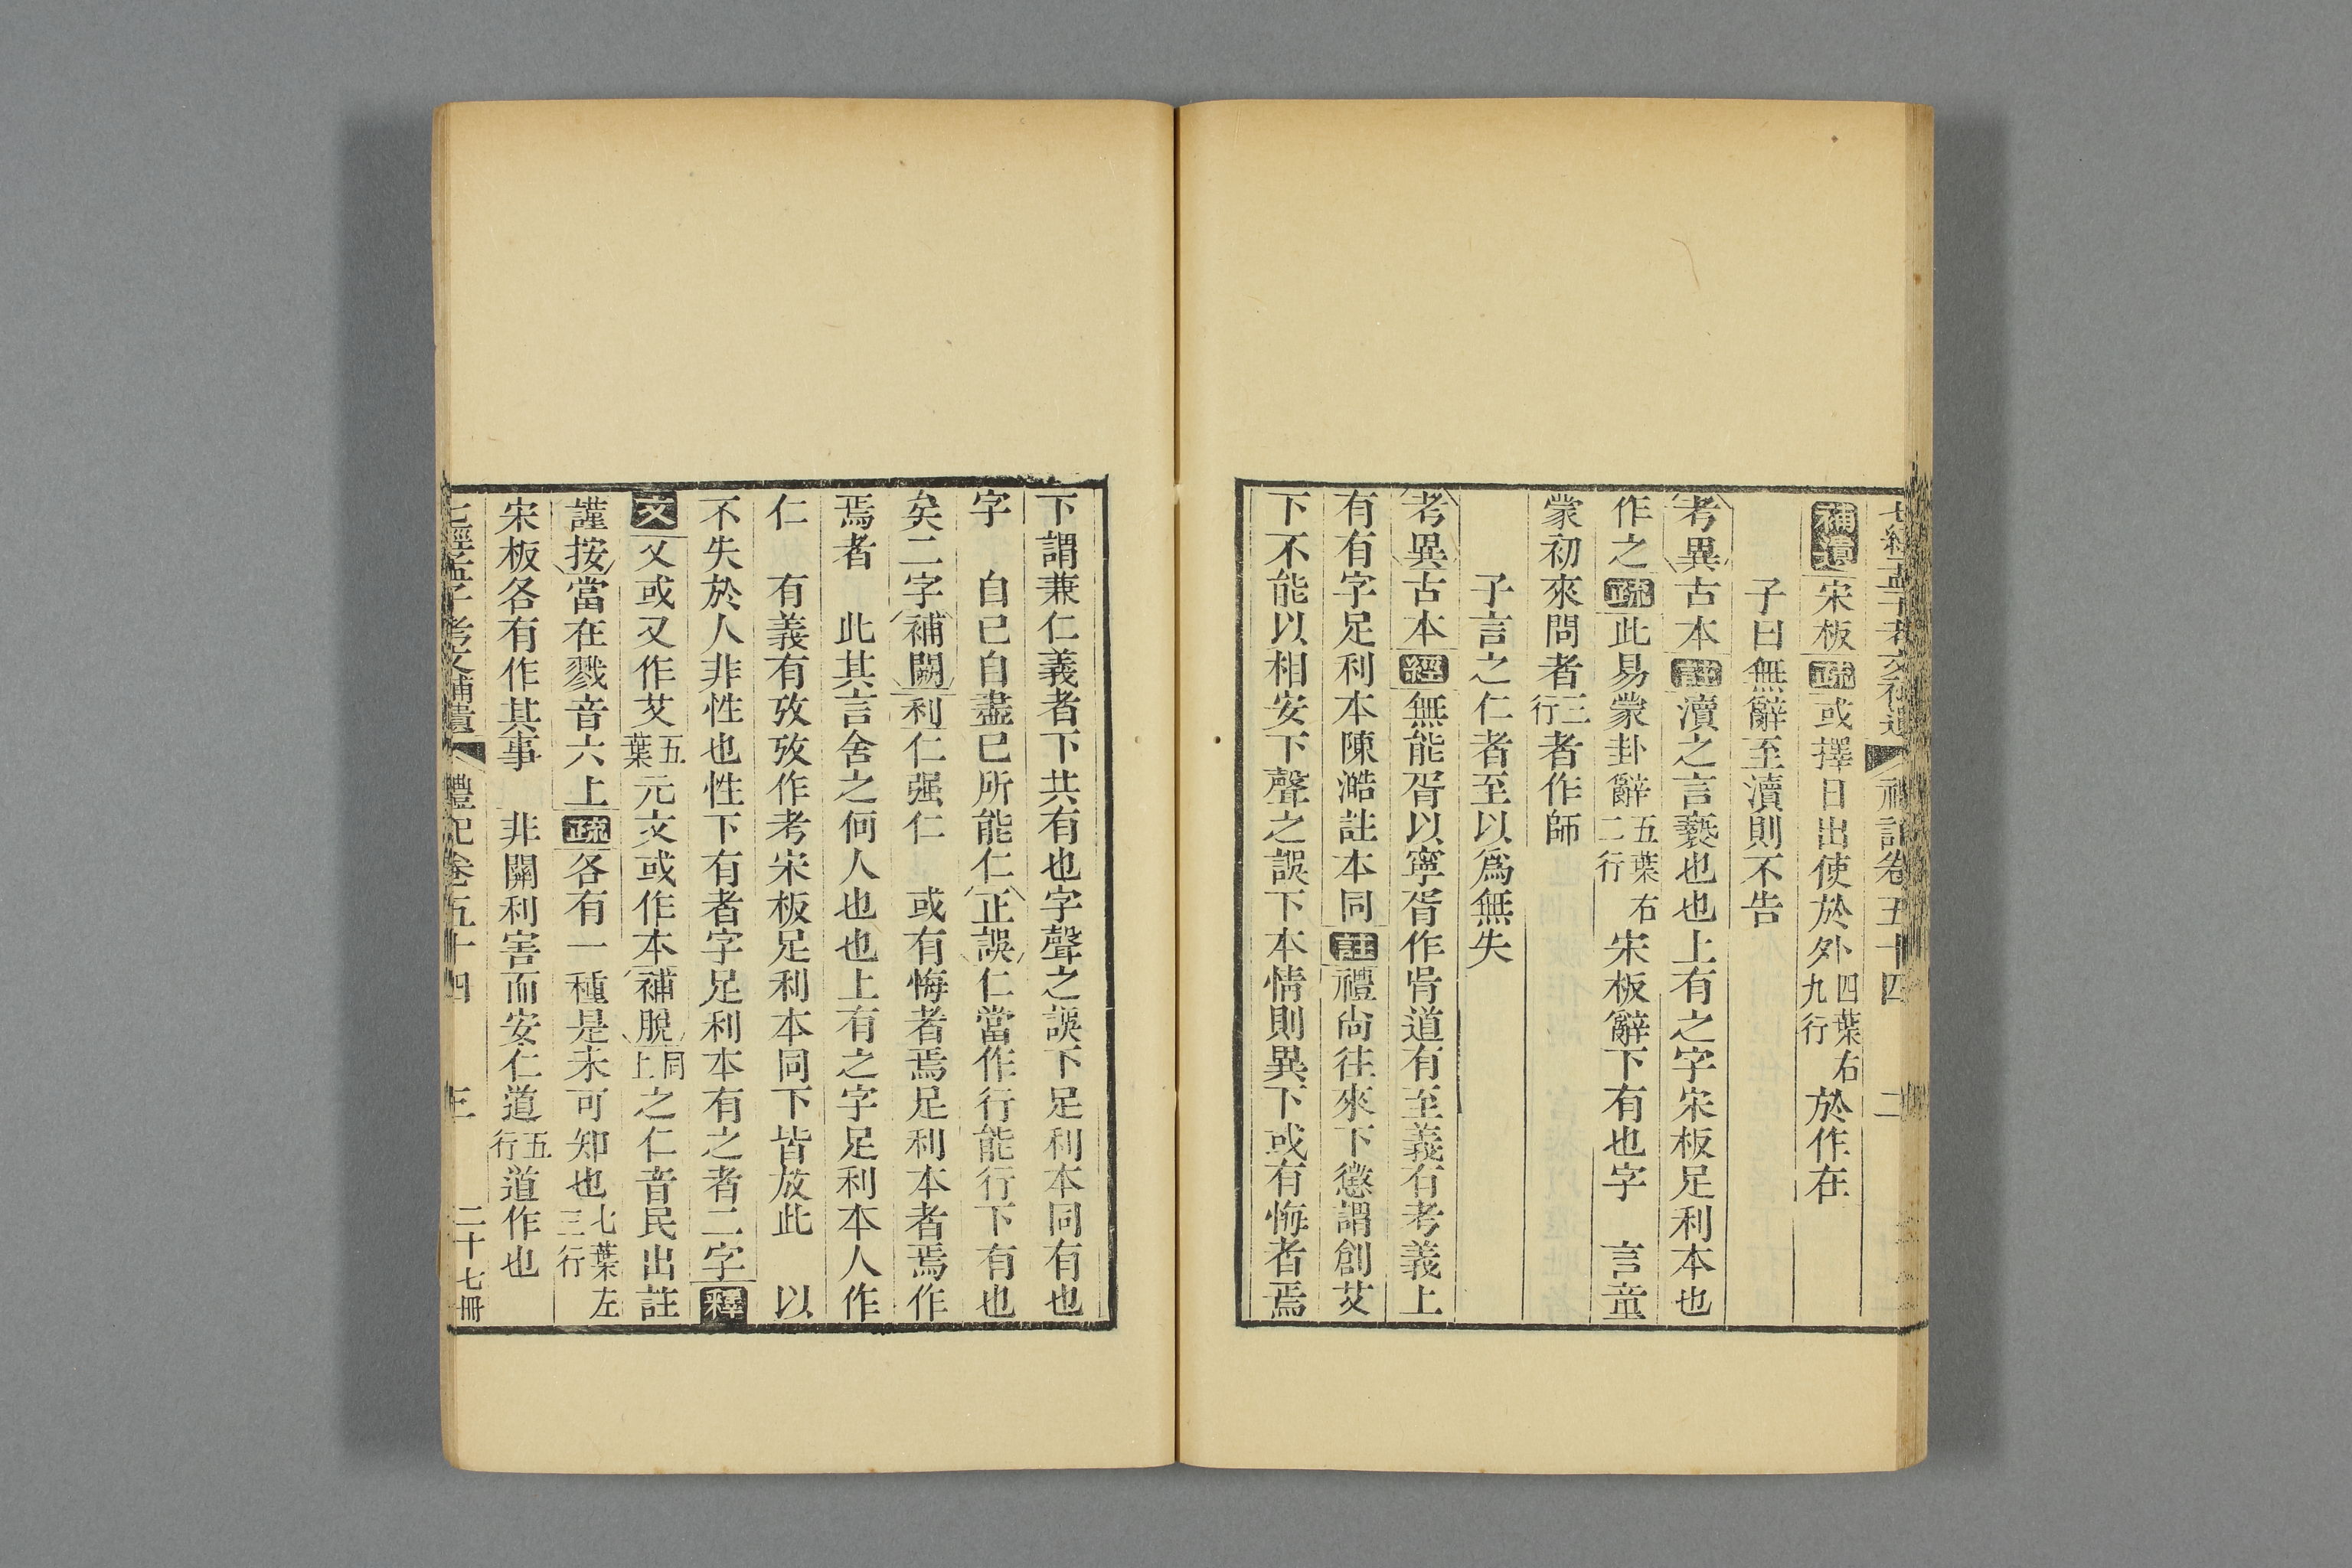 七經孟子考文補遺 禮記卷五十四 二
補遺宋板疏或擇日出使於外四葉右九行於作在
子曰無辭至瀆則不告
考異古本註瀆之言褻也也上有之字宋板足利本也
作之疏此易蒙卦辭五葉右二行宋板辭下有也字 言童
蒙初來問者三行者作師
子言之仁者至以爲無失
考異古本經無能胥以寧胥作骨道有至義右考義上
有有字足利本陳澔註本同註禮尚往來下懲謂創艾
下不能以相安下聲之誤下本情則異下或有悔者焉
下謂兼仁義者下共有也字聲之誤下足利本同有也
字 自已自盡已所能仁正誤仁當作行行能行下有也
矣二字補闕利仁强仁 或有悔者焉足利本者焉作
焉者 此其言舍之何人也也上有之字足利本人作
仁 有義有攷攷作考宋板足利本同下皆放此 以
不失於人非性也性下有者字足利本有之者二字釋
文乂或又作艾五葉元文或作本補脫同上之仁音民出註
謹按當在戮音六上疏各有一種是未可知也七葉左三行
宋板各有作其事 非關利害而安仁道五行道作也
七經孟子考文補遺 禮記卷五十四 三 二十七冊